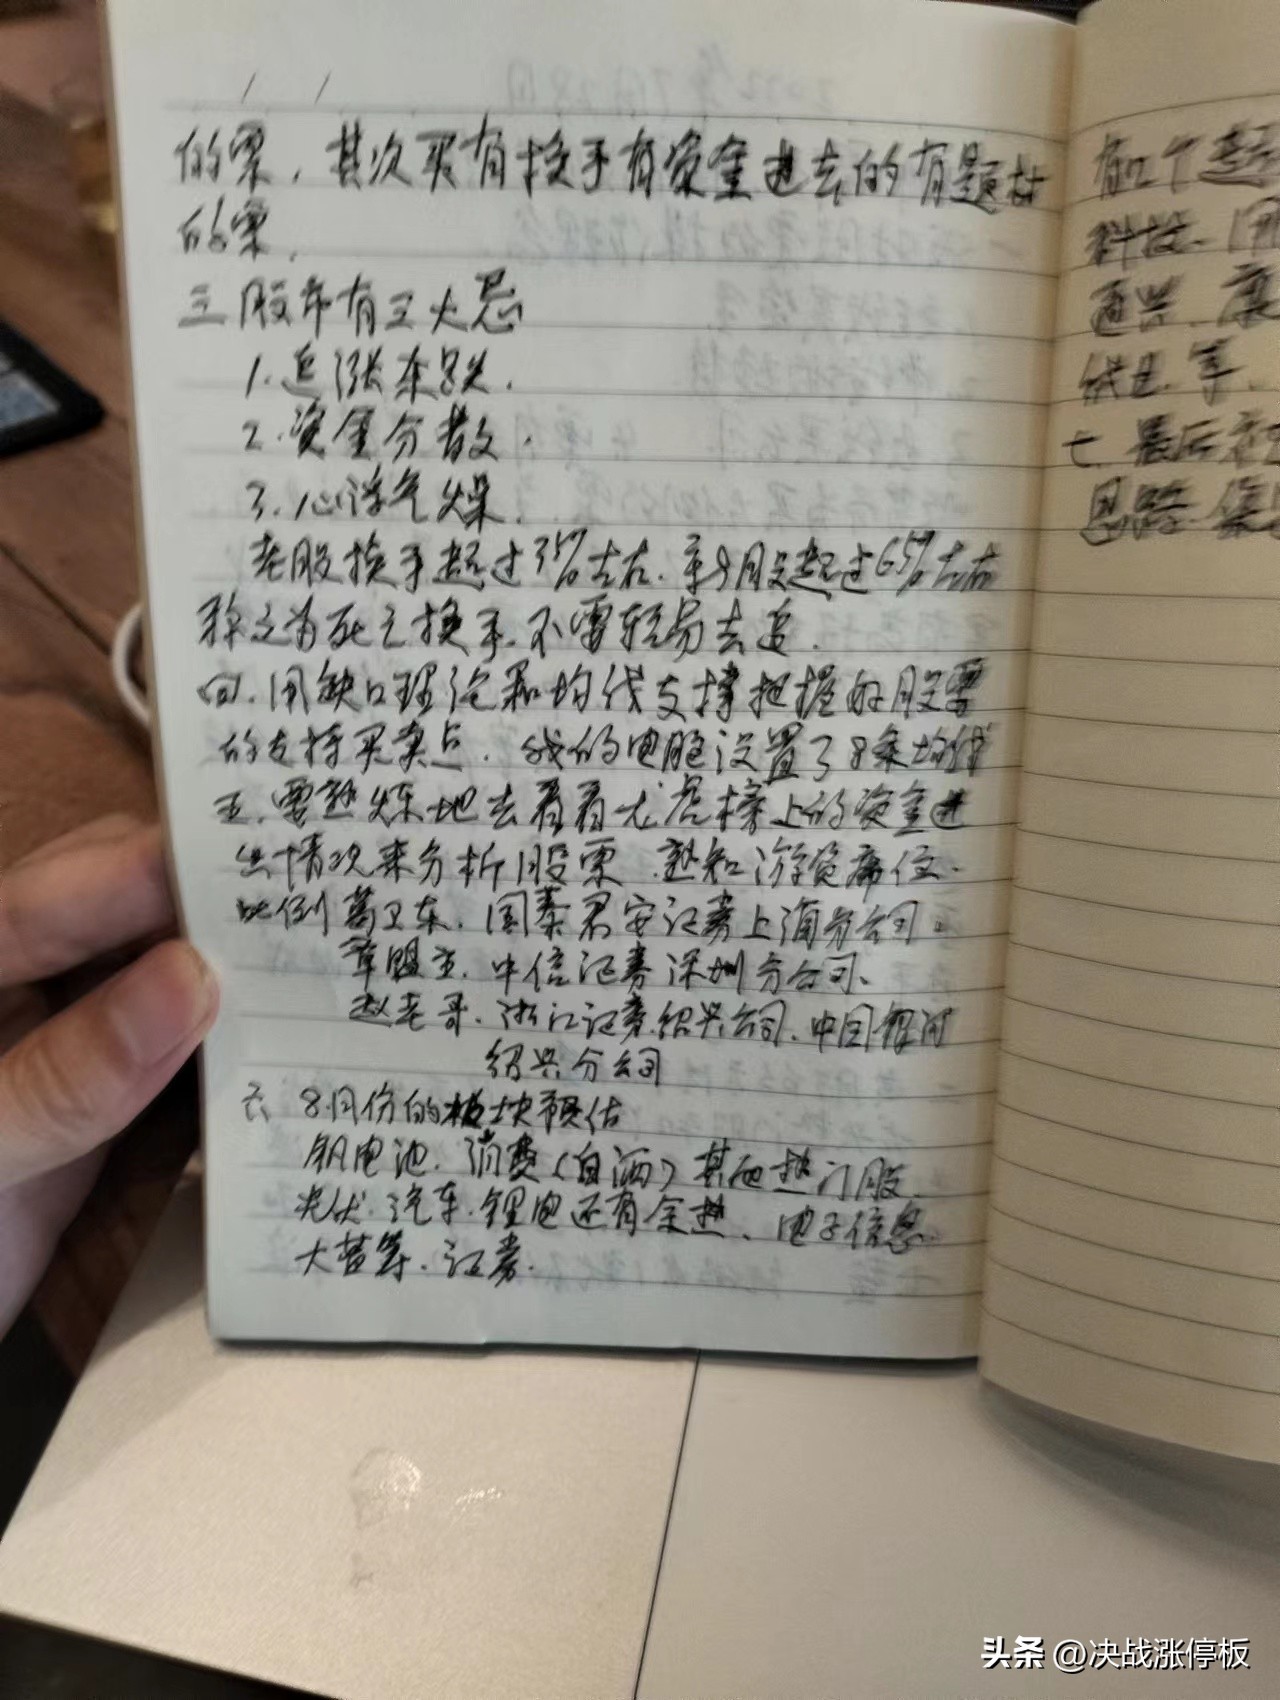 的票，其次买有换手有资金进去的有题材
的票，
三 股市有三大忌
1.追涨杀跌.
2.资金分散.
3.心浮气燥.
老股换手超过35%左右.新股超过65%左右
称之为死亡换手.不要轻易去追.
四.用缺口理论和均线支撑把握好股票
的支持买卖点.我的电脑设置了8条均线
五.要熟炼地去看看龙虎榜上的资金进
出情况来分析股票.熟知游资席位.
比例葛卫东.国泰君安证券上海分公司.
章盟主.中信证券深圳分公司.
赵老哥.浙江证券.绍兴公司.中国银河
绍兴分公司
六 8月份的板块预估
钒电池.消费(白酒)其他热门股.
光伏.汽车.锂电还有余热.电子信息
大苗等.证券.
有几个
科技.
通兴.
等.
七.最后
思路
头条 @决战涨停板